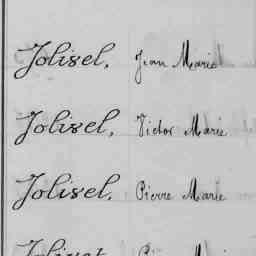 Jolisel, Jean Marie
Jolisel, Victor Marie
Jolisel, Pierre Marie